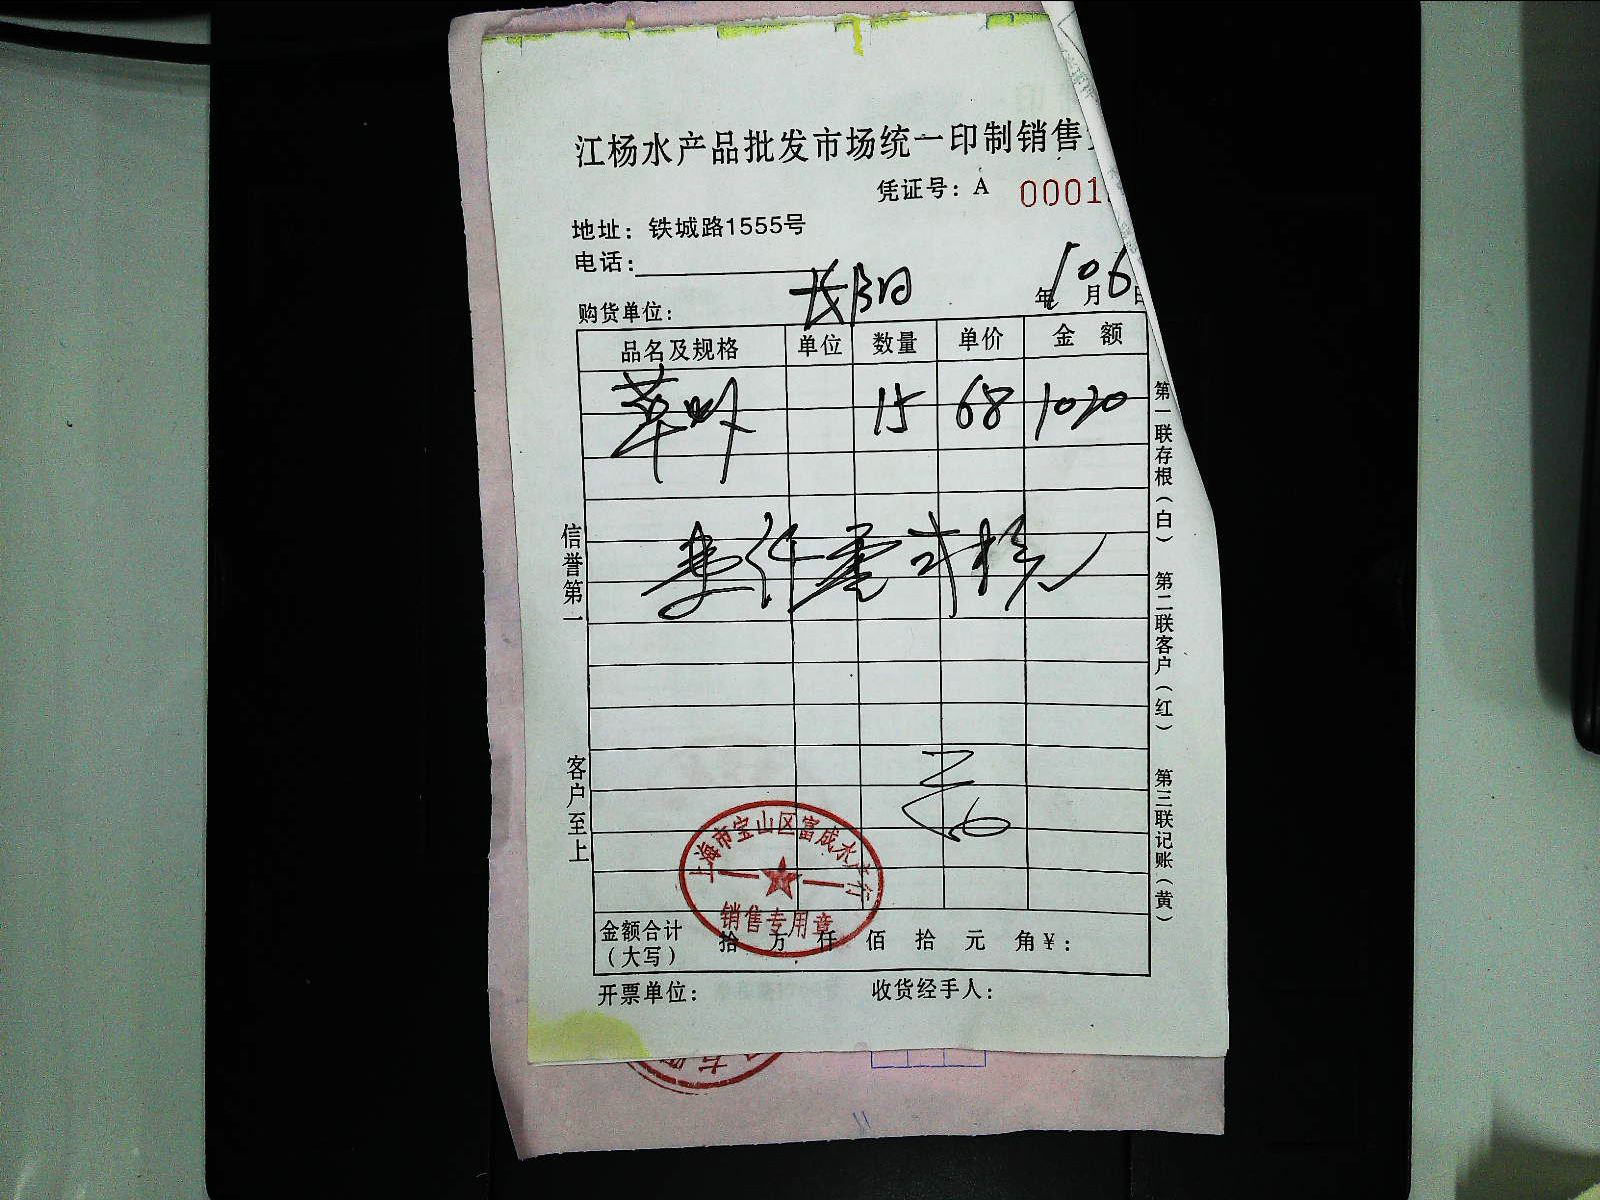 江杨水产品批发市场统一印制销售
凭证号：A 0001
地址：铁城路1555号
电话：
购货单位： 长阳 年10月6日
品名及规格 单位 数量 单价 金额
草虾 15 68 1020
金额合计（大写） 拾 万 仟 佰 拾 元 角 ￥：
开票单位： 收货经手人：
信誉第一
客户至上
第一联存根（白）
第二联客户（红）
第三联记账（黄）
上海市宝山区富成水产行
销售专用章